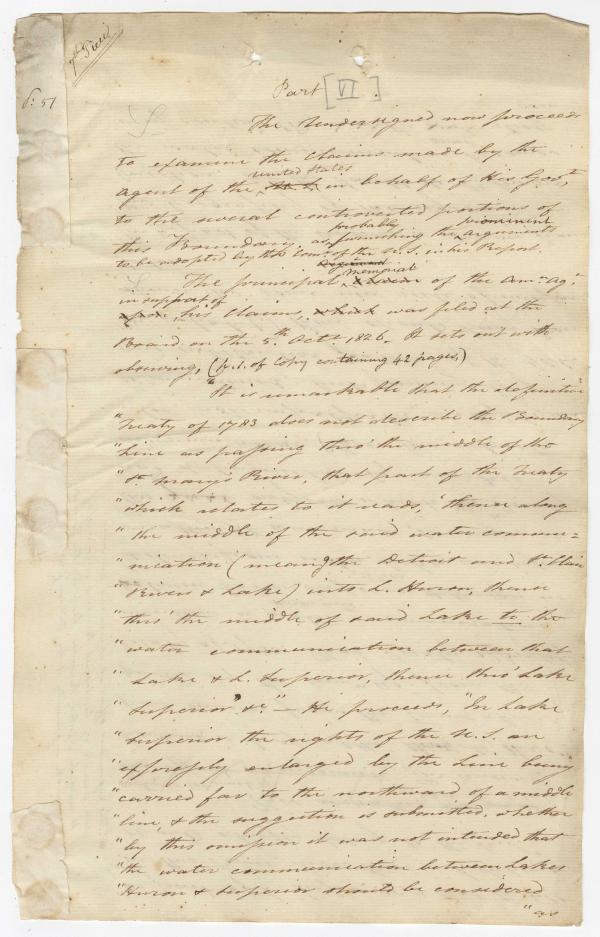 7th Piece
P: 51
Part [VI].
The Undersigned now proceeds
to examine the Claims made by the
united States
agent of the U. S. in behalf of His Govt,
to the several controverted portions of
probably prominent
this Boundary as furnishing the arguments
to be adopted by the Comr. of the U.S. in his Report.
Memorial
The principal of the Amn. Agt.
in support of
upon his Claims, which was filed at the
Board on the 5.th Octr. 1826. It sets out with
observing, (p. 1. of Copy containing 42 pages,)
"It is remarkable that the definitive
"Treaty of 1783 does not describe the Boundary
"Line as passing thro' the middle of the
"St. Mary's River, that part of the Treaty
"which relates to it reads, 'thence along
"the middle of the said water commu=
"nication (meang. the Detroit and St. Clair
"Rivers & Lake) into L. Huron, thence
"thro' the middle of said Lake to the
"water communication between that
"Lake & L. Superior, thence thro' Lake
"Superior' &c." – He proceeds, "In Lake
"Superior the rights of the U.S. are
"expressly enlarged by the Line being
"carried far to the northward of a middle
"line, & the suggestion is submitted, whether
"by this omission it was not intended that
"the water communication between Lakes
"Huron & Superior should be considered
"as